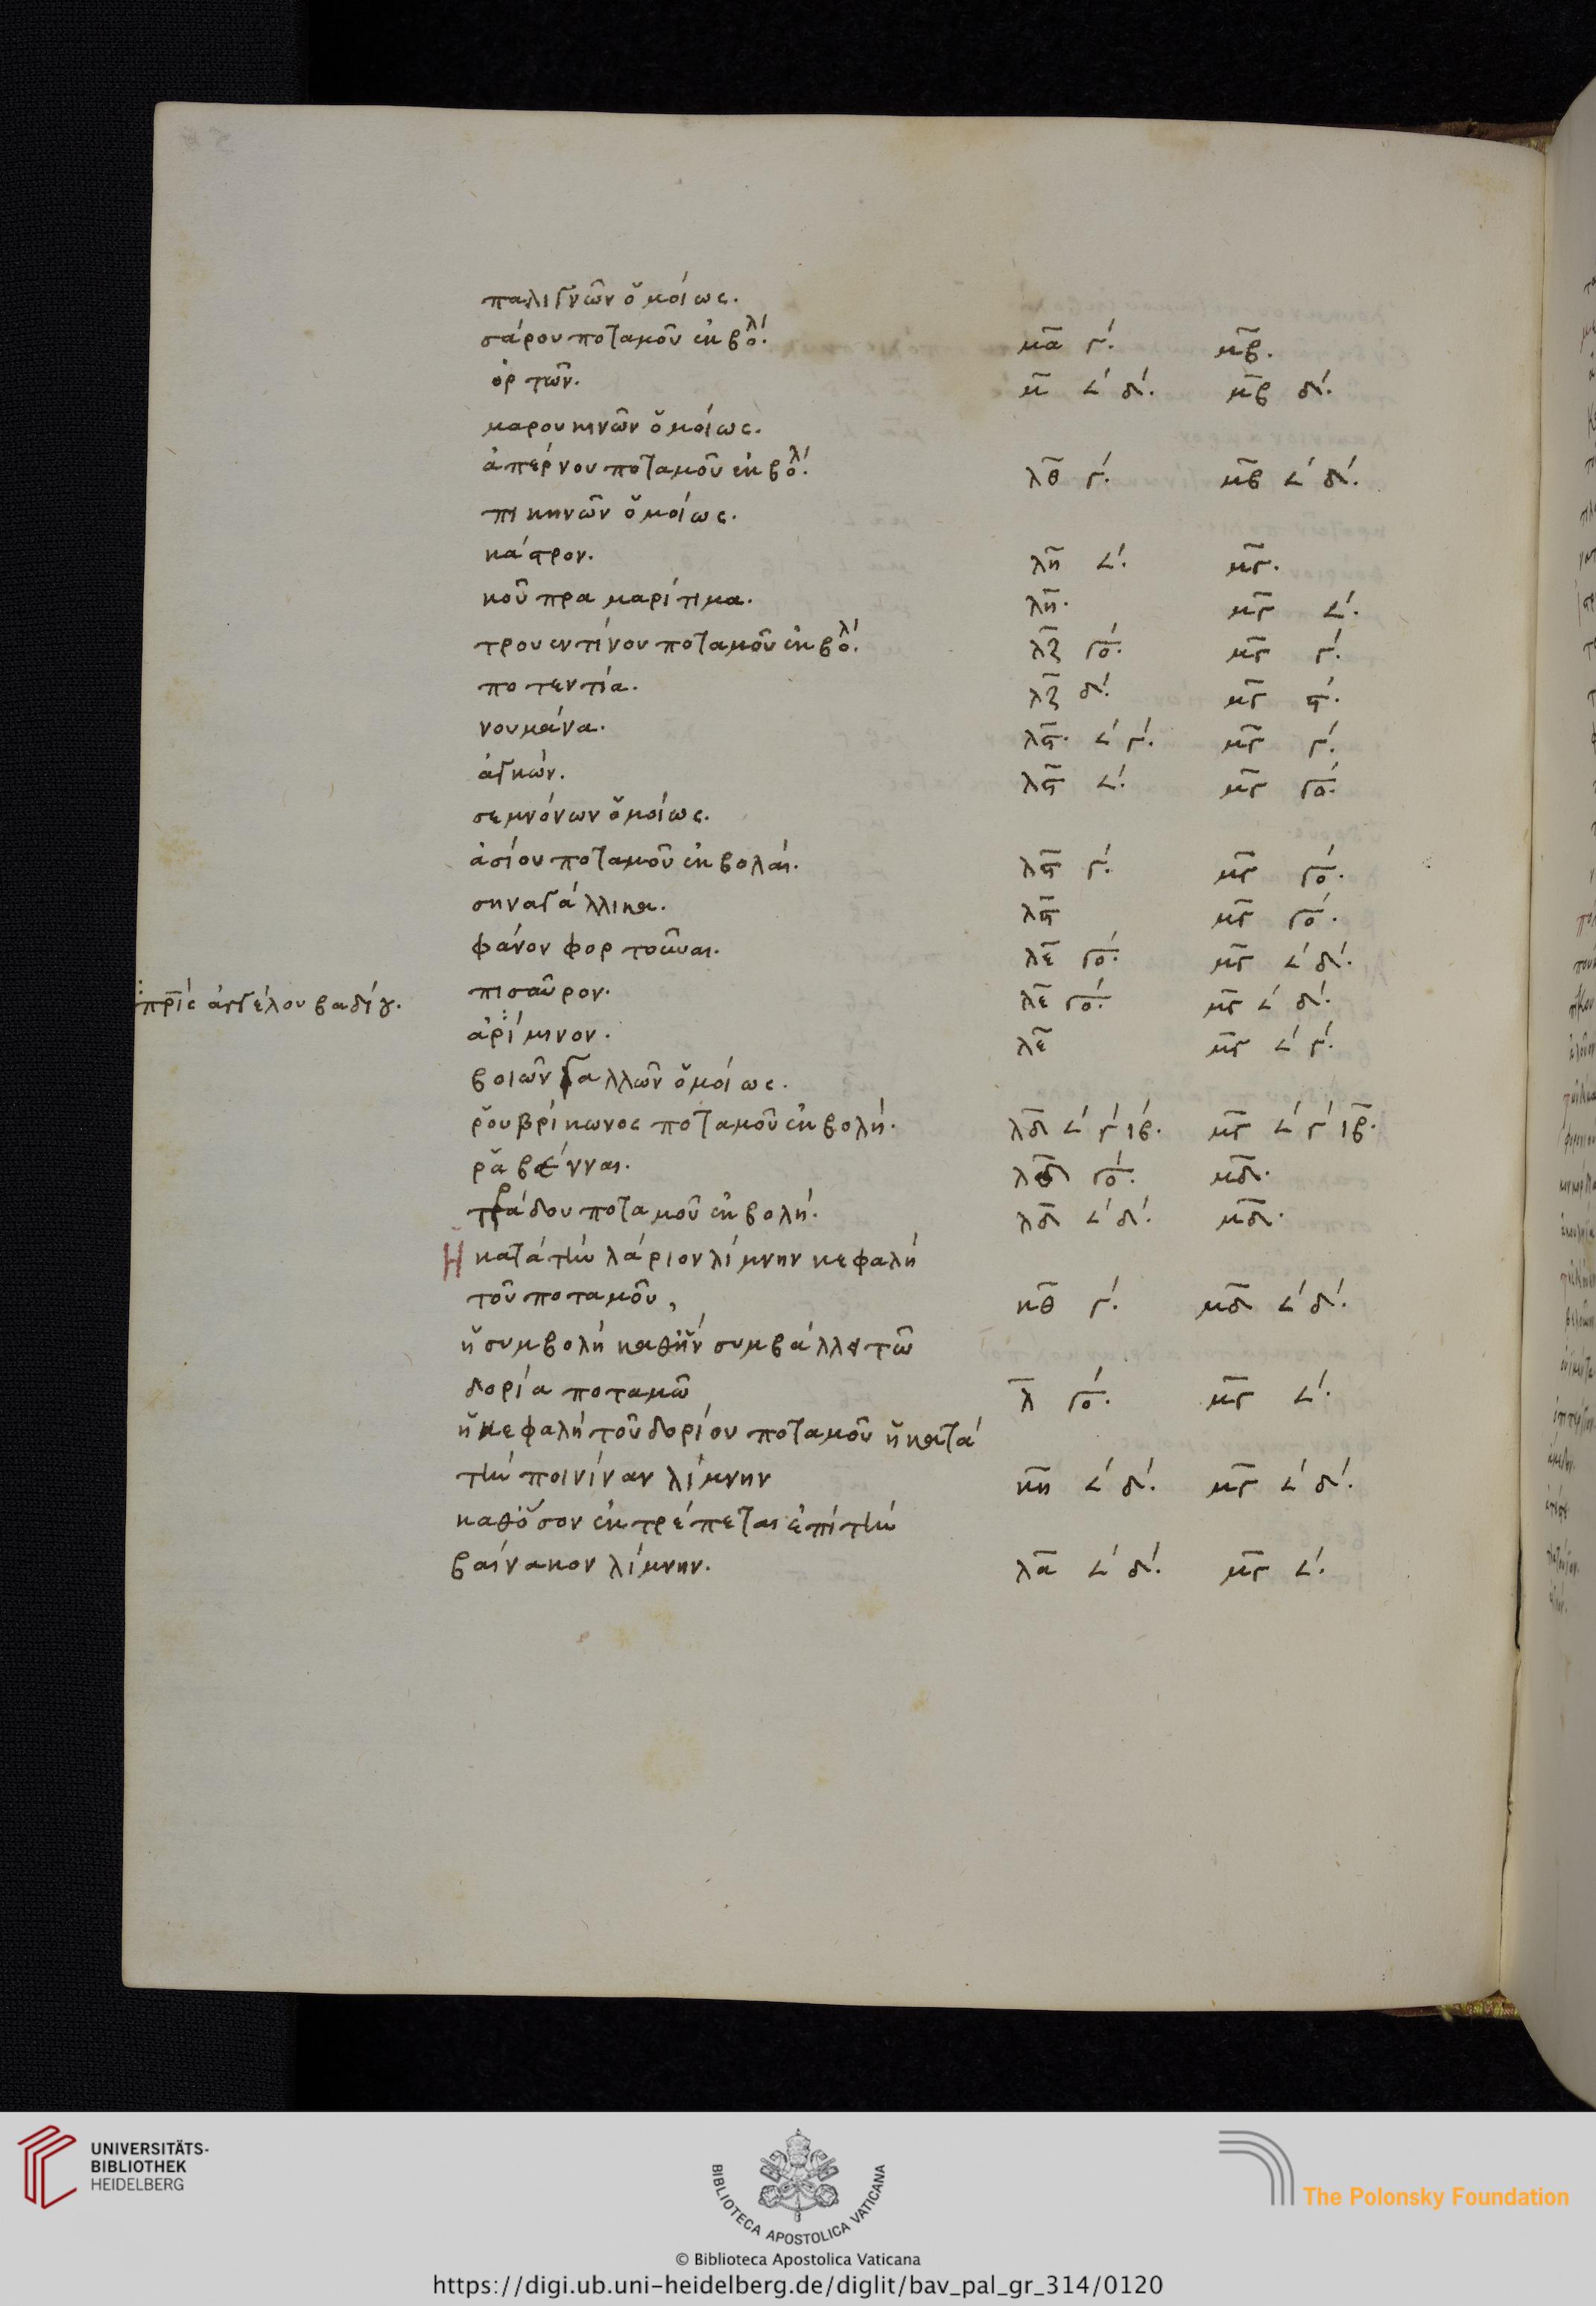 παλιγνῶν ὁμοίως.
σάρου ποταμοῦ ἐκβολ΄. μα γ΄. μβ.
ὀρτῶν. μ ∠΄ δ΄. μβ δ΄.
μαρουκηνῶν ὁμοίως.
ἀπέρνου ποταμοῦ ἐκβολ΄. λθ γ΄. μβ ∠΄ δ΄.
πικηνῶν ὁμοίως.
κάστρον. λη ∠΄. μγ.
κοῦπρα μαρίτιμα. λη. μγ ∠΄.
τρουεντίνου ποταμοῦ ἐκβολ΄. λζ γο΄. μγ γ΄.
ποτεντία. λζ δ΄. μγ ϛ΄.
νουμάνα. λϛ. ∠΄ γ΄. μγ γ΄.
ἀγκών. λϛ ∠΄. μγ γο΄.
σεμνόνων ὁμοίως.
ἀσίου ποταμοῦ ἐκβολαί. λϛ γ΄. μγ γο΄.
σηναγάλλικα. λϛ μγ γο΄.
φάνον φορτοῦναι. λε γο΄. μγ ∠΄ δ΄.
πισαῦρον. λε γο΄. μγ ∠΄ δ΄.
πρὶς ἀγγέλου βαδίγ.
ἀρίμινον. λε μγ ∠΄ γ΄.
βοιῶν γαλλῶν ὁμοίως.
ῥουβρίκωνος ποταμοῦ ἐκβολή. λδ ∠΄ γ΄ ιβ. μγ ∠΄ γ΄ ιβ.
ῥαβένναι. λδ γο΄. μδ.
πάδου ποταμοῦ ἐκβολή. λδ ∠΄ δ΄. μδ.
Η κατὰ τὴν λάριον λίμνην κεφαλὴ
τοῦ ποταμοῦ, κθ γ΄. μδ ∠΄ δ΄.
ἡ συμβολὴ καθ' ἣν συμβάλλει τῶ
δορία ποταμῶ λ γο΄. μγ ∠΄.
ἡ κεφαλὴ τοῦ δορίου ποταμοῦ ἡ κατὰ
τὴν ποινίναν λίμνην κη ∠΄ δ΄. μγ ∠΄ δ΄.
καθόσον ἐκτρέπεται ἐπὶ τὴν
βαίνακον λίμνην. λα ∠΄ δ΄. μγ ∠΄.
UNIVERSITÄTS-
BIBLIOTHEK
HEIDELBERG
BIBLIOTECA APOSTOLICA VATICANA
© Biblioteca Apostolica Vaticana
The Polonsky Foundation
https://digi.ub.uni-heidelberg.de/diglit/bav_pal_gr_314/0120